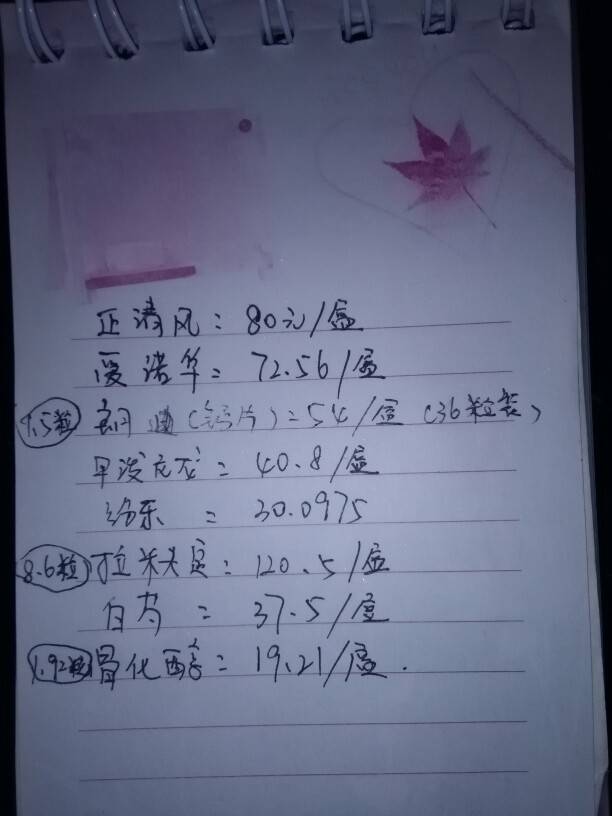 正清风：80元/盒
爱诺华：72.56/盒
1.5粒 通（钙片）：54/盒（36粒装）
甲泼尼龙：40.8/盒
纷乐：30.0975
8.6粒 拉米夫定：120.5/盒
白芍：37.5/盒
1.92粒 骨化醇：19.21/盒.